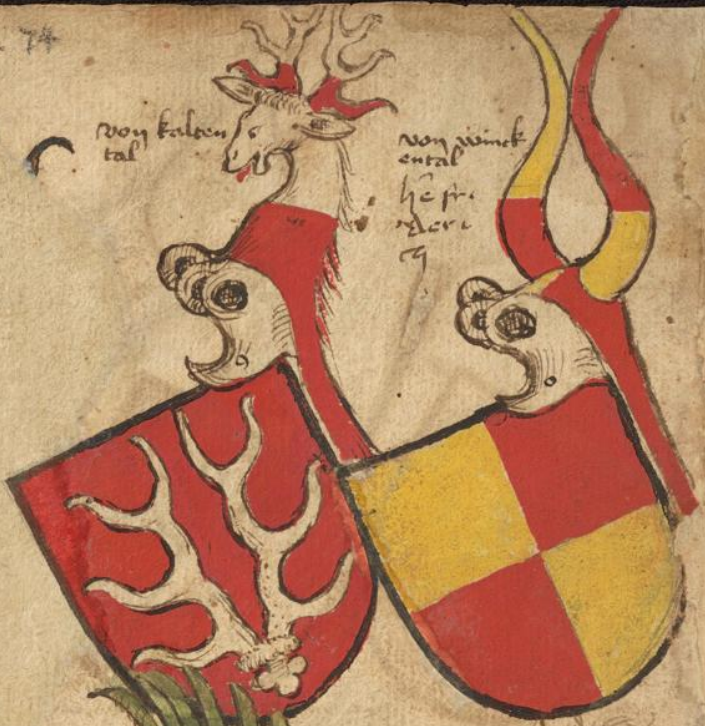 74
von kalten
tal
von winck
ental
he fri
der